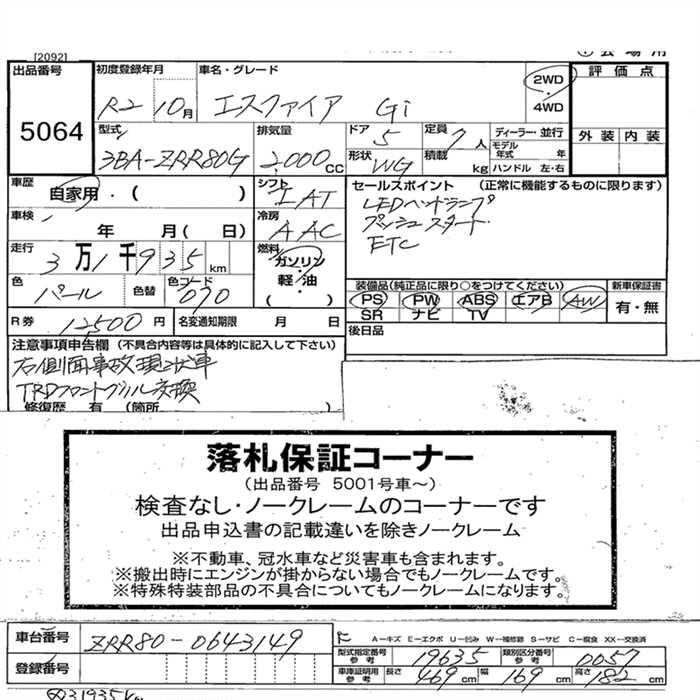 [2092]
出品番号 初度登録年月 車名・グレード 評価点
5064 R2 10月 エスファイア Gi 2WD・4WD
型式 排気量 ドア 定員 ディーラー・並行 外装 内装
3BA-ZRR80G 2,000cc 5 7人 モデル年式 年
形状 WG 積載 kg ハンドル 左・右
車歴 自家用・( ) シフト IAT セールスポイント (正常に機能するものに限ります)
車検 年 月(日) 冷房 AAC LEDヘッドランプ
プッシュスタート
ETC
走行 3万1千935km 燃料 ガソリン・軽油・( )
色 パール 色替 色コード 070 装備品(純正品に限り○をつけてください) 新車保証書
PS PW ABS エアB AW 有・無
SR ナビ TV
R券 12500円 名変通知期限 月 日 後日品
注意事項申告欄(不具合内容等は具体的に記入して下さい)
右側面事故現状車
TRDフロントグリル交換
修復歴 有 (箇所
落札保証コーナー
(出品番号 5001号車〜)
検査なし・ノークレームのコーナーです
出品申込書の記載違いを除きノークレーム
※不動車、冠水車など災害車も含まれます。
※搬出時にエンジンが掛からない場合でもノークレームです。
※特殊特装部品の不具合についてもノークレームになります。
車台番号 ZRR80-0643149 A-キズ E-エクボ U-凹み W-補修跡 S-サビ C-腐食 XX-交換済
型式指定番号 参考 19635 類別区分番号 参考 0057
登録番号 車庫証明用 参考 長さ 469cm 幅 169cm 高さ 182cm
31935km